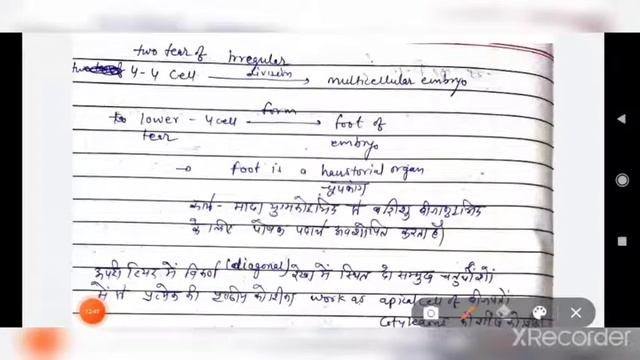 two tear of irregular
4-4 cell division multicellular embryo
to lower - 4 cell form foot of
tear embryo
→ foot is a haustorial organ
चूषकांग
कार्य- मादा युग्मकोद्भिद से शिशु बीजाणुउद्भिद
के लिए पोषक पदार्थ अवशोषित करता है।
ऊपरी टियर में विकर्ण (diagonal) रेखा में स्थित दो सम्मुख
में से प्रत्येक की work as apical cell of
Cotyledons
12:47
XRecorder